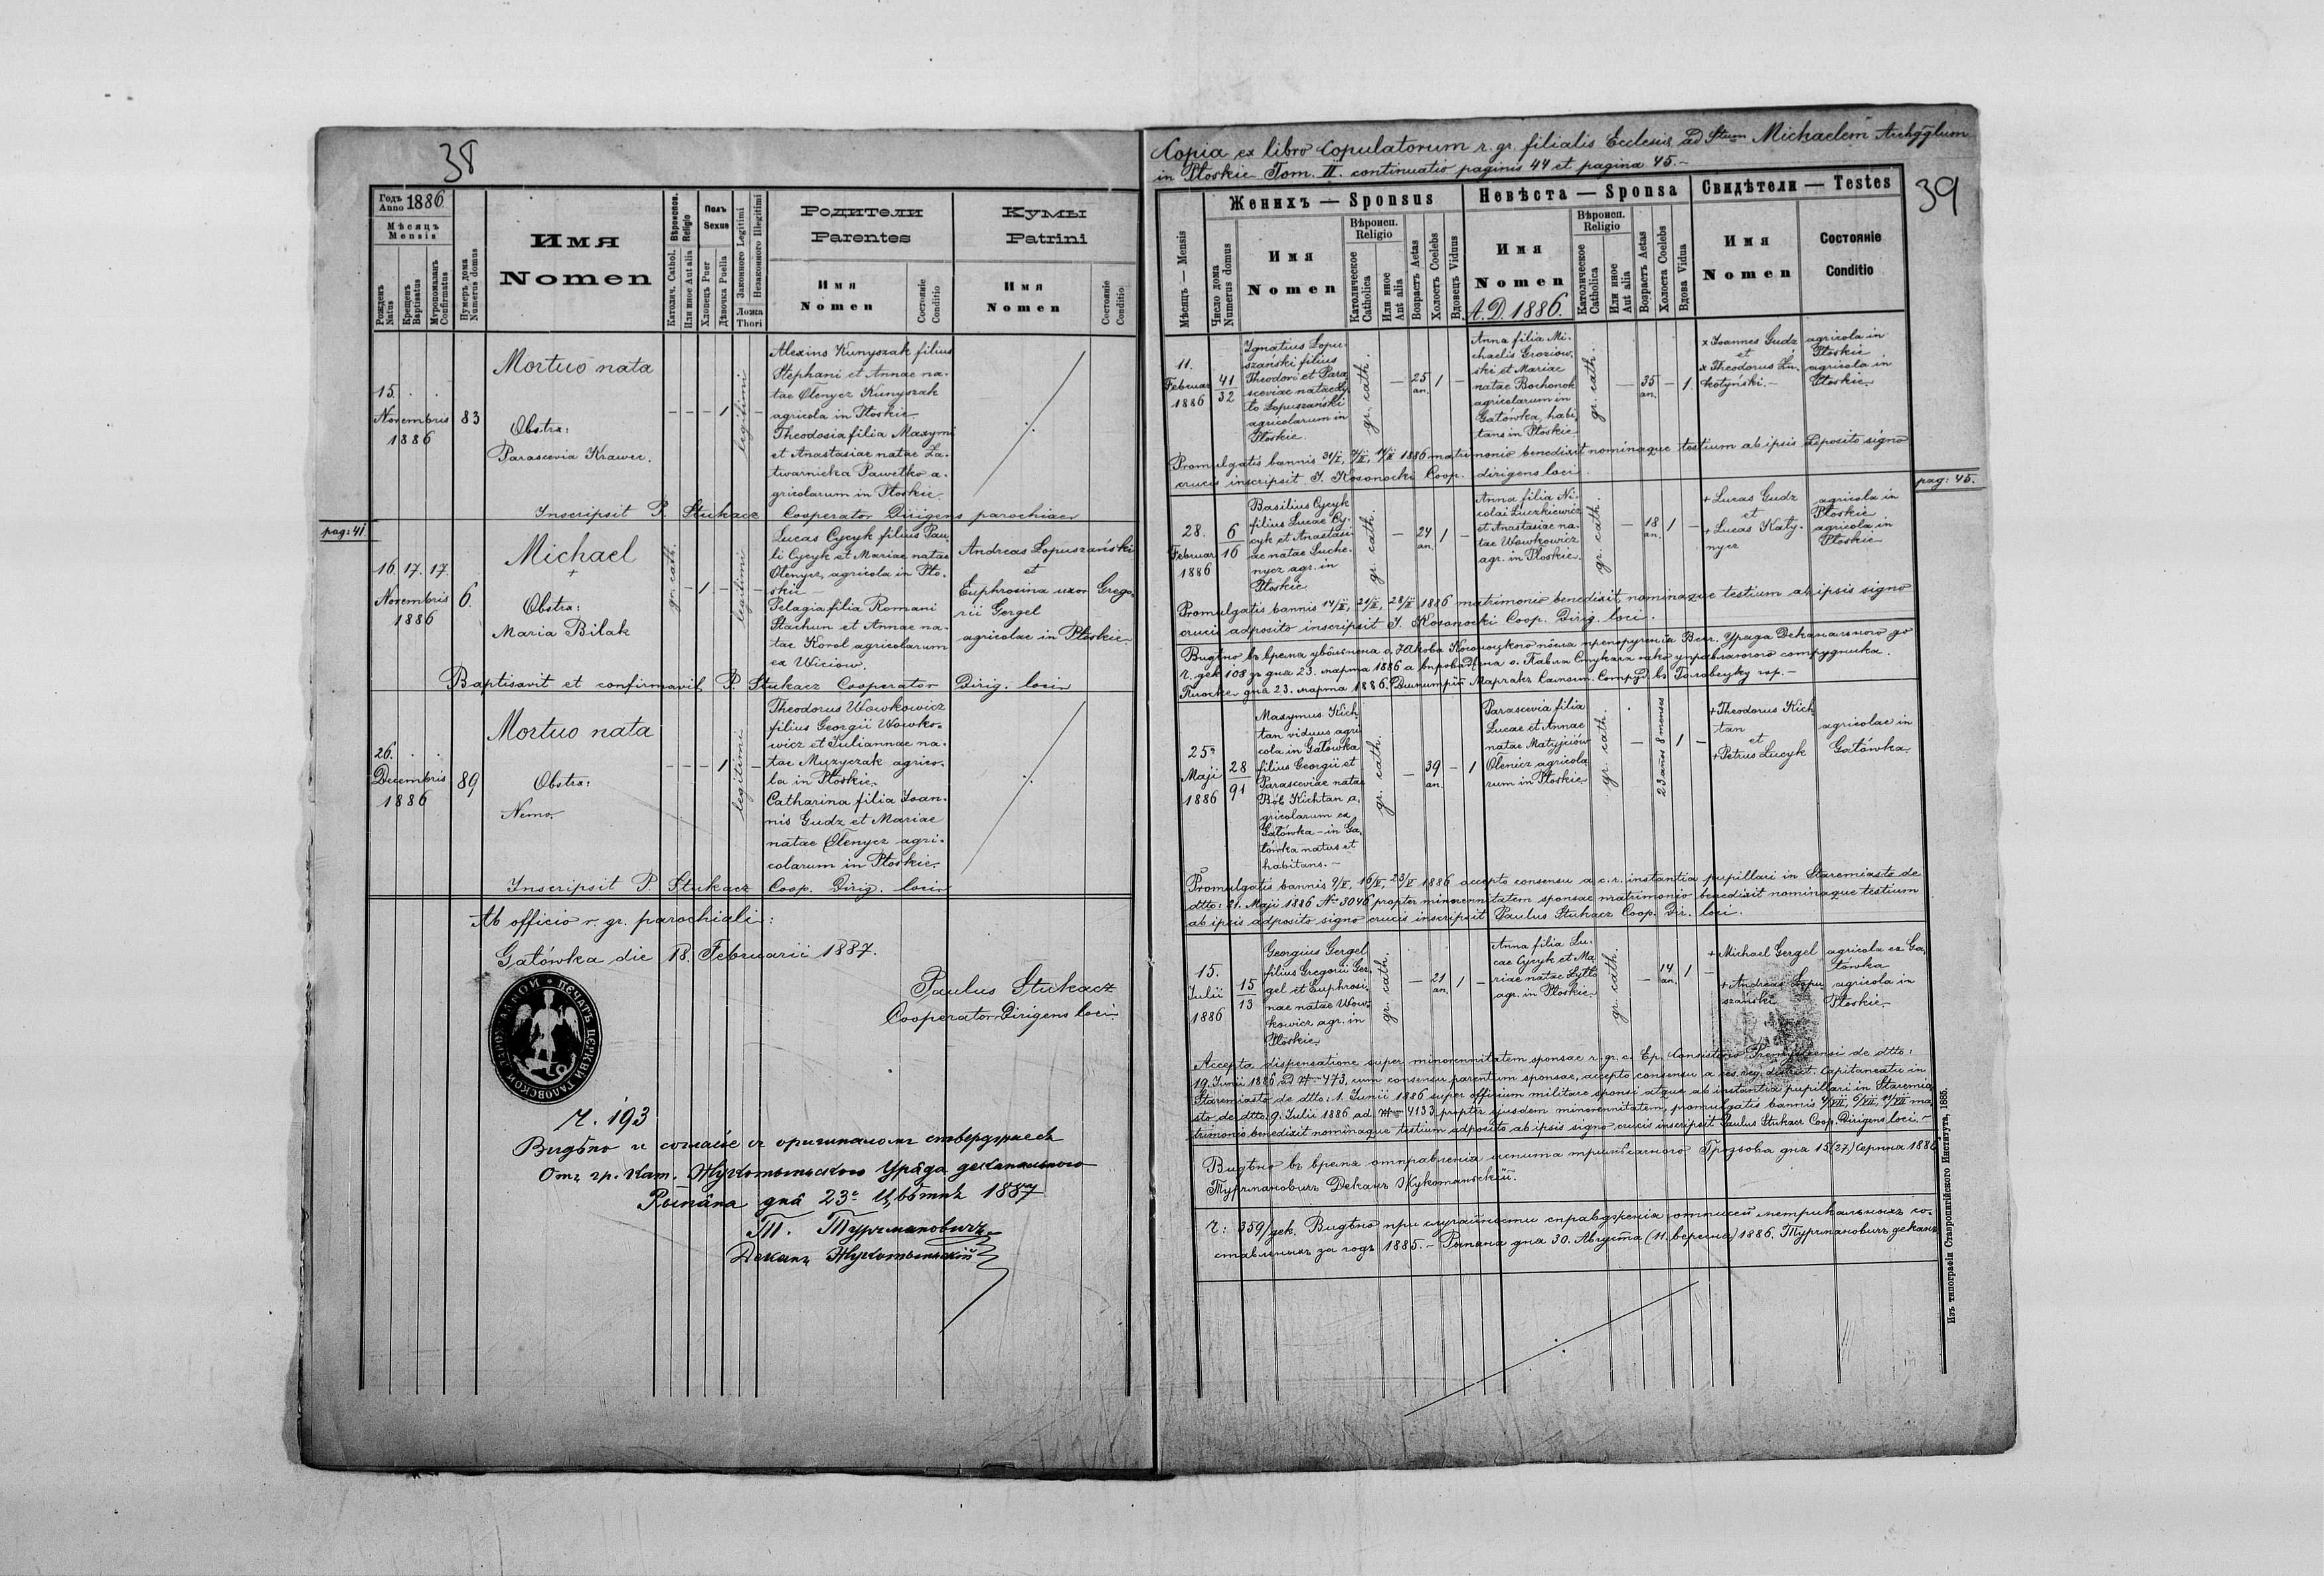 38
Годъ Anno 1886
Мѣсяцъ
Mensis
Рожденъ Natus
Крещенъ Baptisatus
Мvропомазанъ Confirmatus
Нумеръ дома Numerus domus
Имя
Nomen
Вѣроиспов. Religio
Католич. Cathol.
Или иное Aut alia
Полъ Sexus
Хлопецъ Puer
Дѣвочка Puella
Законного Legitimi
Незаконного Illegitimi
Ложа Thori
Родители
Parentes
Имя
Nomen
Состоянiе Conditio
Кумы
Patrini
Имя
Nomen
Состоянiе Conditio
15. . .
Novembris
1886
83
Mortuo nata
Obstra:
Parascevia Krawec.
- - - 1 -
legitimi
Alexius Kunyszak filius
Stephani et Annae na-
tae Ołenycz Kunyszak
agricola in Płoskie.
Theodosia filia Maxymi
et Anastasiae natae Za-
twarnicka Pawełko a-
gricolarum in Płoskie.
Inscripsit P. Stukacz Cooperator Dirigens parochiae
pag: 41.
16. 17. 17.
Novembris
1886
6.
Michael
+
Obstra:
Maria Bilak
gr. cath.
- 1 - -
legitimi
Lucas Cycyk filius Pau-
li Cycyk et Mariae natae
Olenycz, agricola in Pło-
skie
Pelagia filia Romani
Stachun et Annae na-
tae Korol agricolarum
ex Wiciow.
Andreas Łopuszański
et
Euphrosina uxor Grego-
rii Gergel
agricolae in Płoskie
Baptisavit et confirmavit P. Stukacz Cooperator Dirig. loci
26. . .
Decembris
1886
89
Mortuo nata
Obstra:
Nemo.
- - - 1 -
legitimi
Theodorus Wowkowicz
filius Georgii Wowko-
wicz et Juliannae na-
tae Muzyczak agrico-
la in Płoskie.
Catharina filia Joan-
nis Gudz et Mariae
natae Ołenycz agri-
colarum in Płoskie.
Inscripsit P. Stukacz Coop. Dirig. loci
Ab officio r. gr. parochiali:
Gałówka die 18. Februarii 1887.
Paulus Stukacz
Cooperator Dirigens loci
ПЕЧАТЬ ЦЕРКВИ ГАЛОВСКОЙ ПАРОХIАЛНОИ
Ч. 193
Видѣно и согласіе съ оригиналомъ стверджаесь
Отъ гр. кат. Жукотыньского Уряда деканального
Рыпяна дня 23º Цвѣтня 1887
Т. Турчмановичъ
Деканъ Жукотыньскій
Copia ex libro Copulatorum r. gr. filialis Ecclesiæ ad Stum Michaelem Archgglum
in Płoskie Tom. II. continuatio paginis 44 et pagina 45.-
39
Женихъ — Sponsus
Невѣста — Sponsa
Свидѣтели — Testes
Мѣсяцъ — Mensis
Число дома Numerus domus
Имя
Nomen
Вѣроисп. Religio
Католическое Catholica
Или иное Aut alia
Возрастъ Aetas
Холостъ Coelebs
Вдовецъ Viduus
Имя
Nomen
A.D. 1886.
Вѣроисп. Religio
Католическое Catholica
Или иное Aut alia
Возрастъ Aetas
Холоста Coelebs
Вдова Vidua
Имя
Nomen
Состоянiе
Conditio
11.
Februar
1886
41
32
Ignatius Łopu-
szański filius
Theodori et Para
sceviae natae Ly
to Łopuszański
agricolarum in
Płoskie.
gr. cath.
- 25 an. 1 -
Anna filia Mi-
chaelis Groziow-
ski et Mariae
natae Bochonok
agricolarum in
Gałówka, habi-
tans in Płoskie
gr. cath.
- 35 an. - 1.
x Joannes Gudz
et
x Theodorus Żu-
kotyński.-
agricola in
Płoskie
agricola in
Płoskie.
Promulgatis bannis 31/I, 7/II, 14/II 1886 matrimonio benedixit nominaque testium ab ipsis adposito signo
crucis inscripsit J. Kosonocki Coop. dirigens loci.
pag: 45.
28.
Februar
1886
6
16
Basilius Cycyk
filius Lucae Cy-
cyk et Anastasi-
ae natae Suche-
nycz agr. in
Płoskie
gr. cath.
- 24 an. 1 -
Anna filia Ni-
colai Łuczkiewicz
et Anastasiae na-
tae Wowkowicz
agr. in Płoskie.
gr. cath.
- 18 an. 1 -
+ Lucas Gudz
et
+ Lucas Katy-
nycz
agricola in
Płoskie
agricola in
Płoskie
Promulgatis bannis 14/II, 21/II, 28/II 1886 matrimonio benedixit nominaque testium ab ipsis signo
crucis adposito inscripsit J. Kosonocki Coop. Dirig. loci.
Видѣно въ время увôльненя о. Якова Косоноцкого пôсля препорученія Вса. Уряда Деканального до
ч. дек 108 зъ дня 23. марта 1886 а впровадженя о. Павла Стукача яко управляючого сотрудника.
Плоске дня 23. марта 1886. Димитрій Марлакъ Самост. Сотруд. въ Головецку гор.-
25º
Maji
1886
28
91
Maxymus Kich-
tan viduus agri
cola in Gałówka
filius Georgii et
Parasceviae natae
Bób Kichtan a-
gricolarum ex
Gałówka - in Ga-
łówka natus et
habitans.-
gr. cath.
- 39 an. - 1
Parascevia filia
Lucae et Annae
natae Matyjciów
Olenicz agricola
rum in Płoskie
gr. cath.
- 23 annos 8 menses 1 -
+ Theodorus Kich
tan
et
+ Petrus Lucyk
agricolae in
Gałówka.
Promulgatis bannis 9/V, 16/V, 23/V 1886 accepto consensu a c. r. instantia pupillari in Staremiasto de
dtto: 21. Maji 1886 Nro 3046 propter minorennitatem sponsae matrimonio benedixit nominaque testium
ab ipsis adposito signo crucis inscripsit Paulus Stukacz Coop. Dir. loci.
15.
Julii
1886
15
13
Georgius Gergel
filius Gregorii Ger-
gel et Euphrosi-
nae natae Wow-
kowicz agr. in
Płoskie.
gr. cath.
- 21 an. 1 -
Anna filia Lu-
cae Cycyk et Ma-
riae natae Lytto
agr. in Płoskie.
gr. cath.
- 14 an. 1 -
+ Michael Gergel
+ Andreas Łopu-
szański
agricola ex Ga-
łówka
agricola in
Płoskie.
Accepta dispensatione super minorennitatem sponsae r. gr. c. Ep. Consistorio Premysliensi de dtto:
19. Junii 1886 ad N 473, cum consensu parentum sponsae, accepto consensu a ces. reg. district. Capitaneatu in
Staremiasto de dtto: 1. Junii 1886 super officium militare sponsi atque ab instantia pupillari in Staremia
sto de dtto: 9. Julii 1886 ad N 4133 propter ejusdem minorennitatem, promulgatis bannis 4/VII, 6/VII, 11/VII ma
trimonio benedixit nominaque testium adposito ab ipsis signo crucis inscripsit Paulus Stukacz Coop. Dirigens loci.-
Видѣно въ время отправленія испыта Грозьова дня 15 (27) Серпня 1886
Турчмановичъ Деканъ Жукотыньскій.
Ч: 359/дек. Видѣно при случайности справдженія отписей метрикальныхъ со-
ставленыхъ за годъ 1885.- Рыпяна дня 30. Августа (11. вересня) 1886. Турчмановичъ деканъ
Изъ типографiи Ставропигiйского Института, 1885.